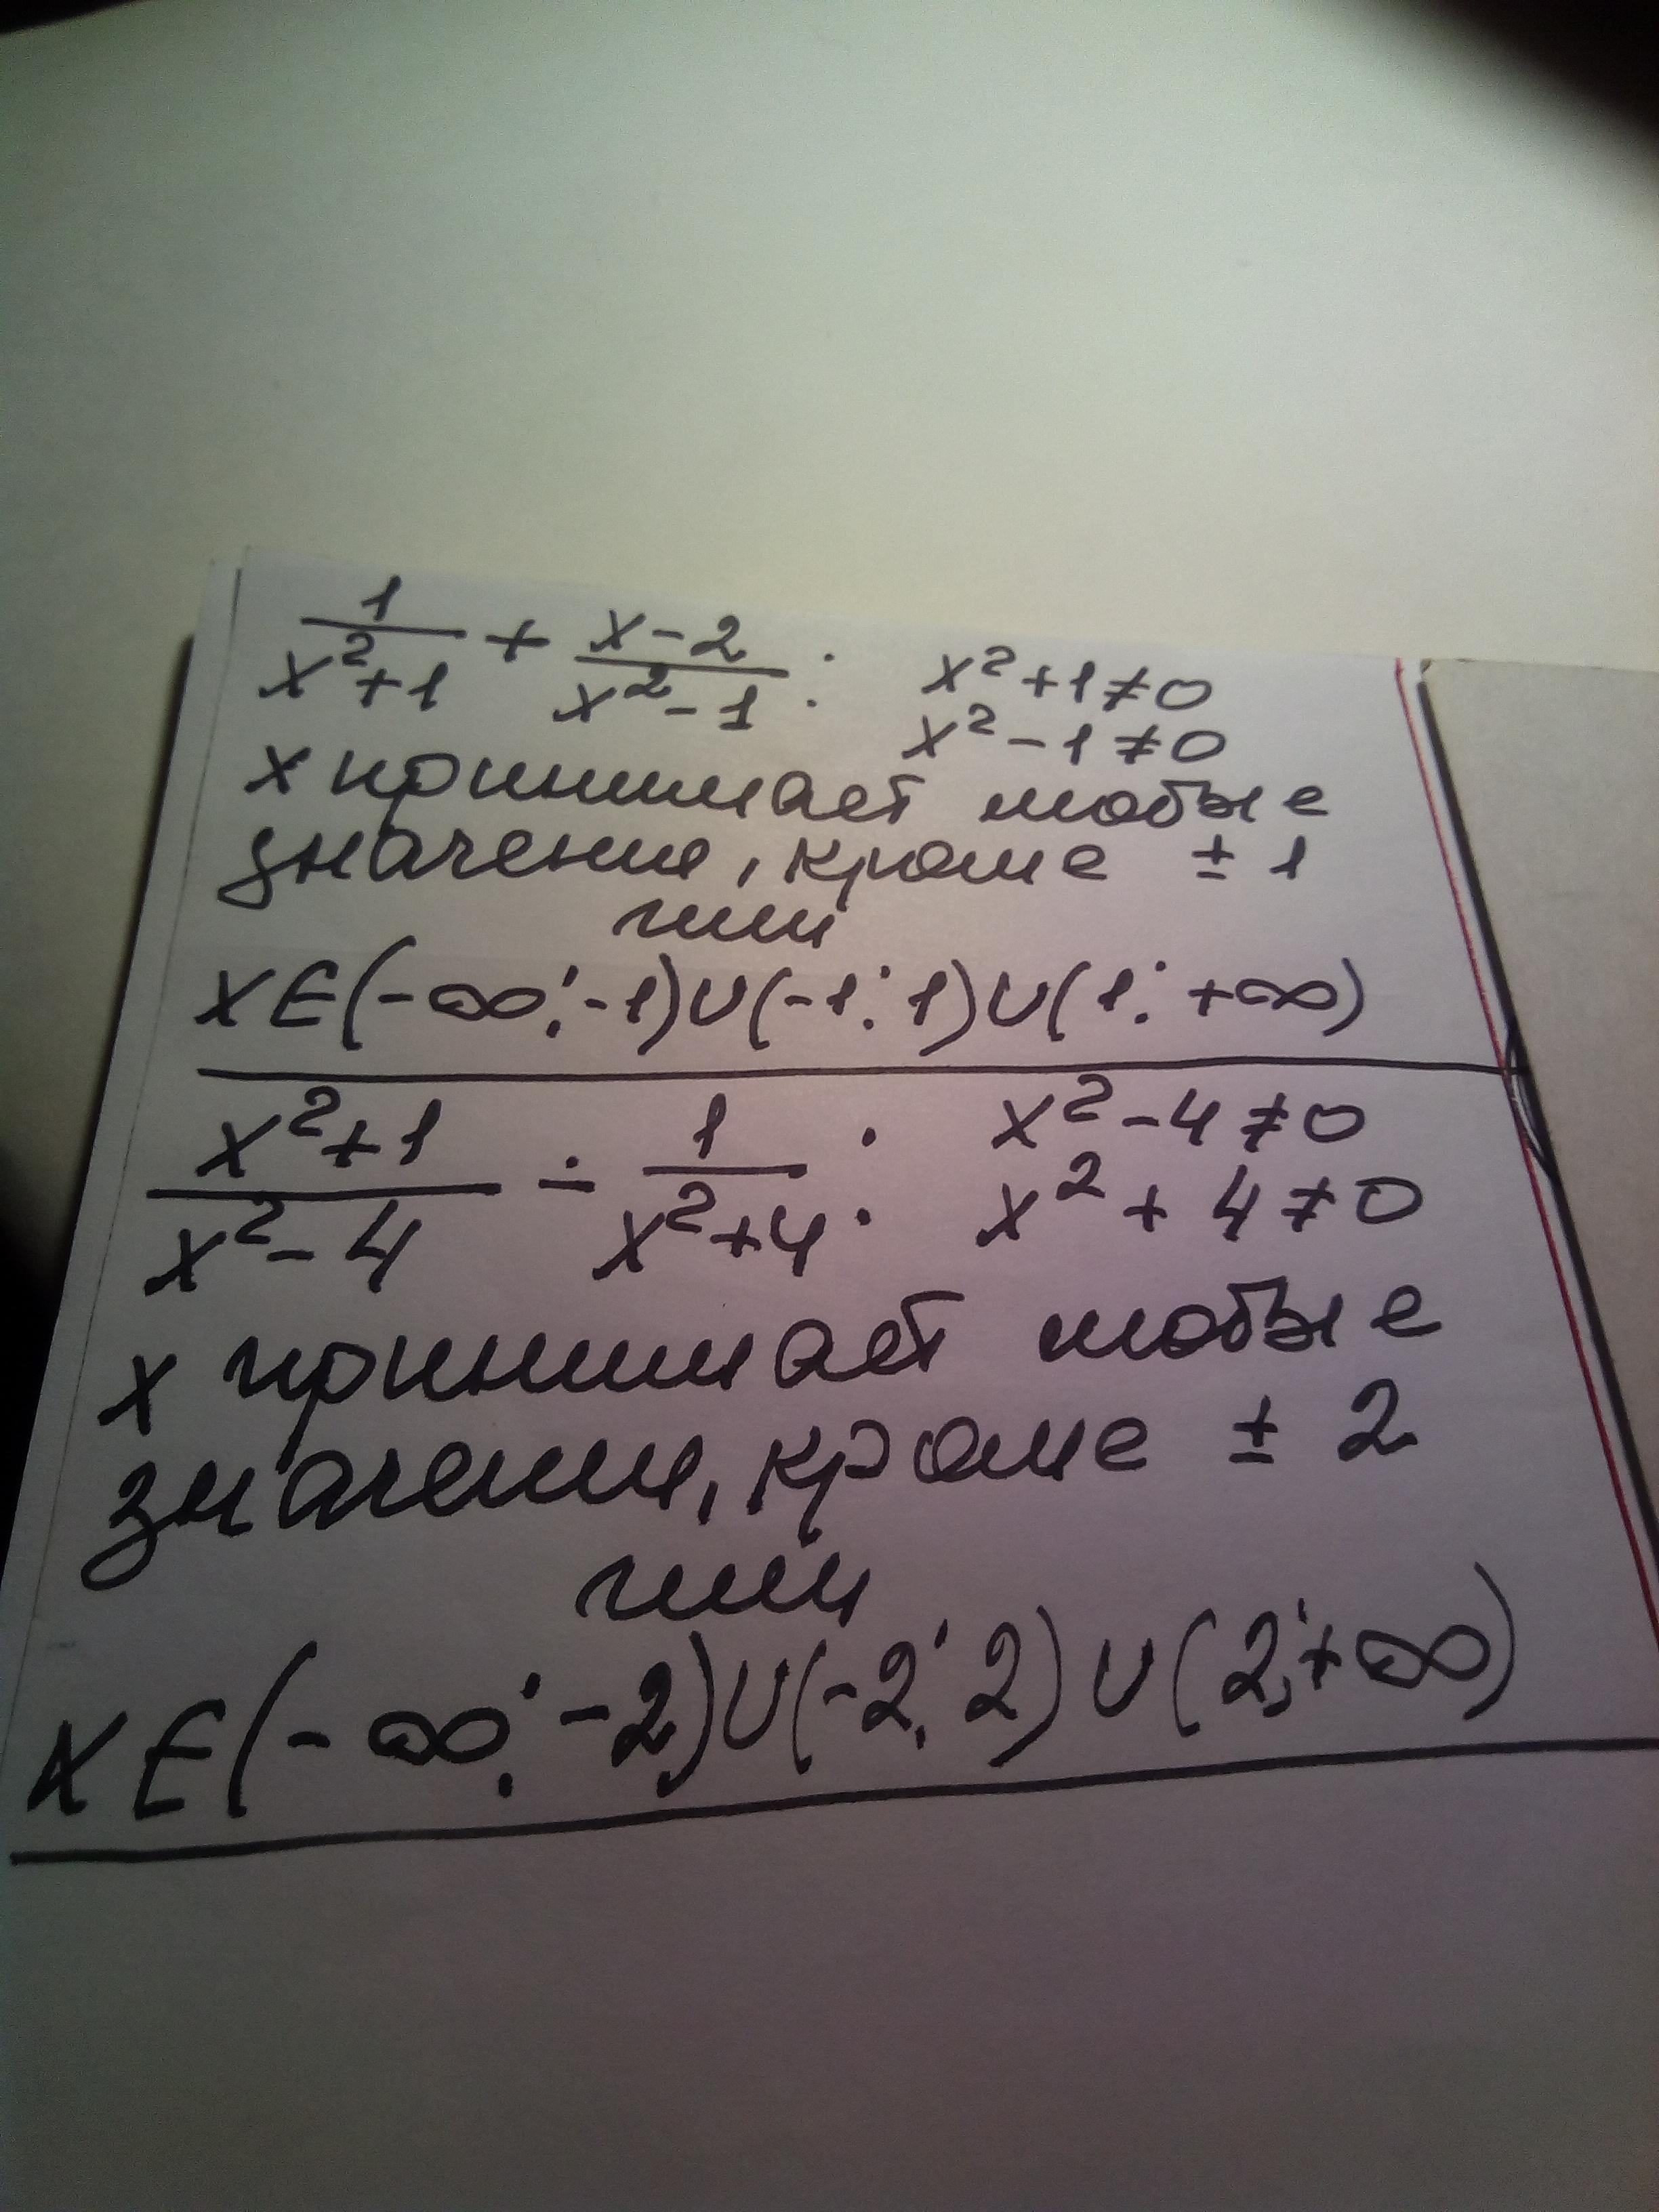 1/(x²+1) + (x-2)/(x²-1) : x²+1≠0
x²-1≠0
x принимает любые
значения, кроме ±1
или
x∈(-∞;-1)∪(-1;1)∪(1;+∞)
(x²+1)/(x²-4) ÷ 1/(x²+4) : x²-4≠0
x²+4≠0
x принимает любые
значения, кроме ±2
или
x∈(-∞;-2)∪(-2;2)∪(2;+∞)